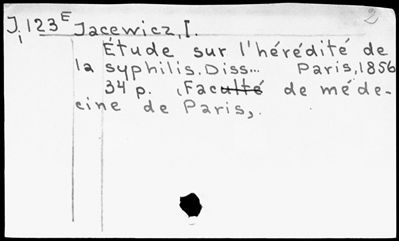 J,123ᴱ Jacewicz, I. 2
i
Étude sur l'hérédité de
la syphilis. Diss... Paris, 1856
34 p. (Faculté de méde-
cine de Paris,.